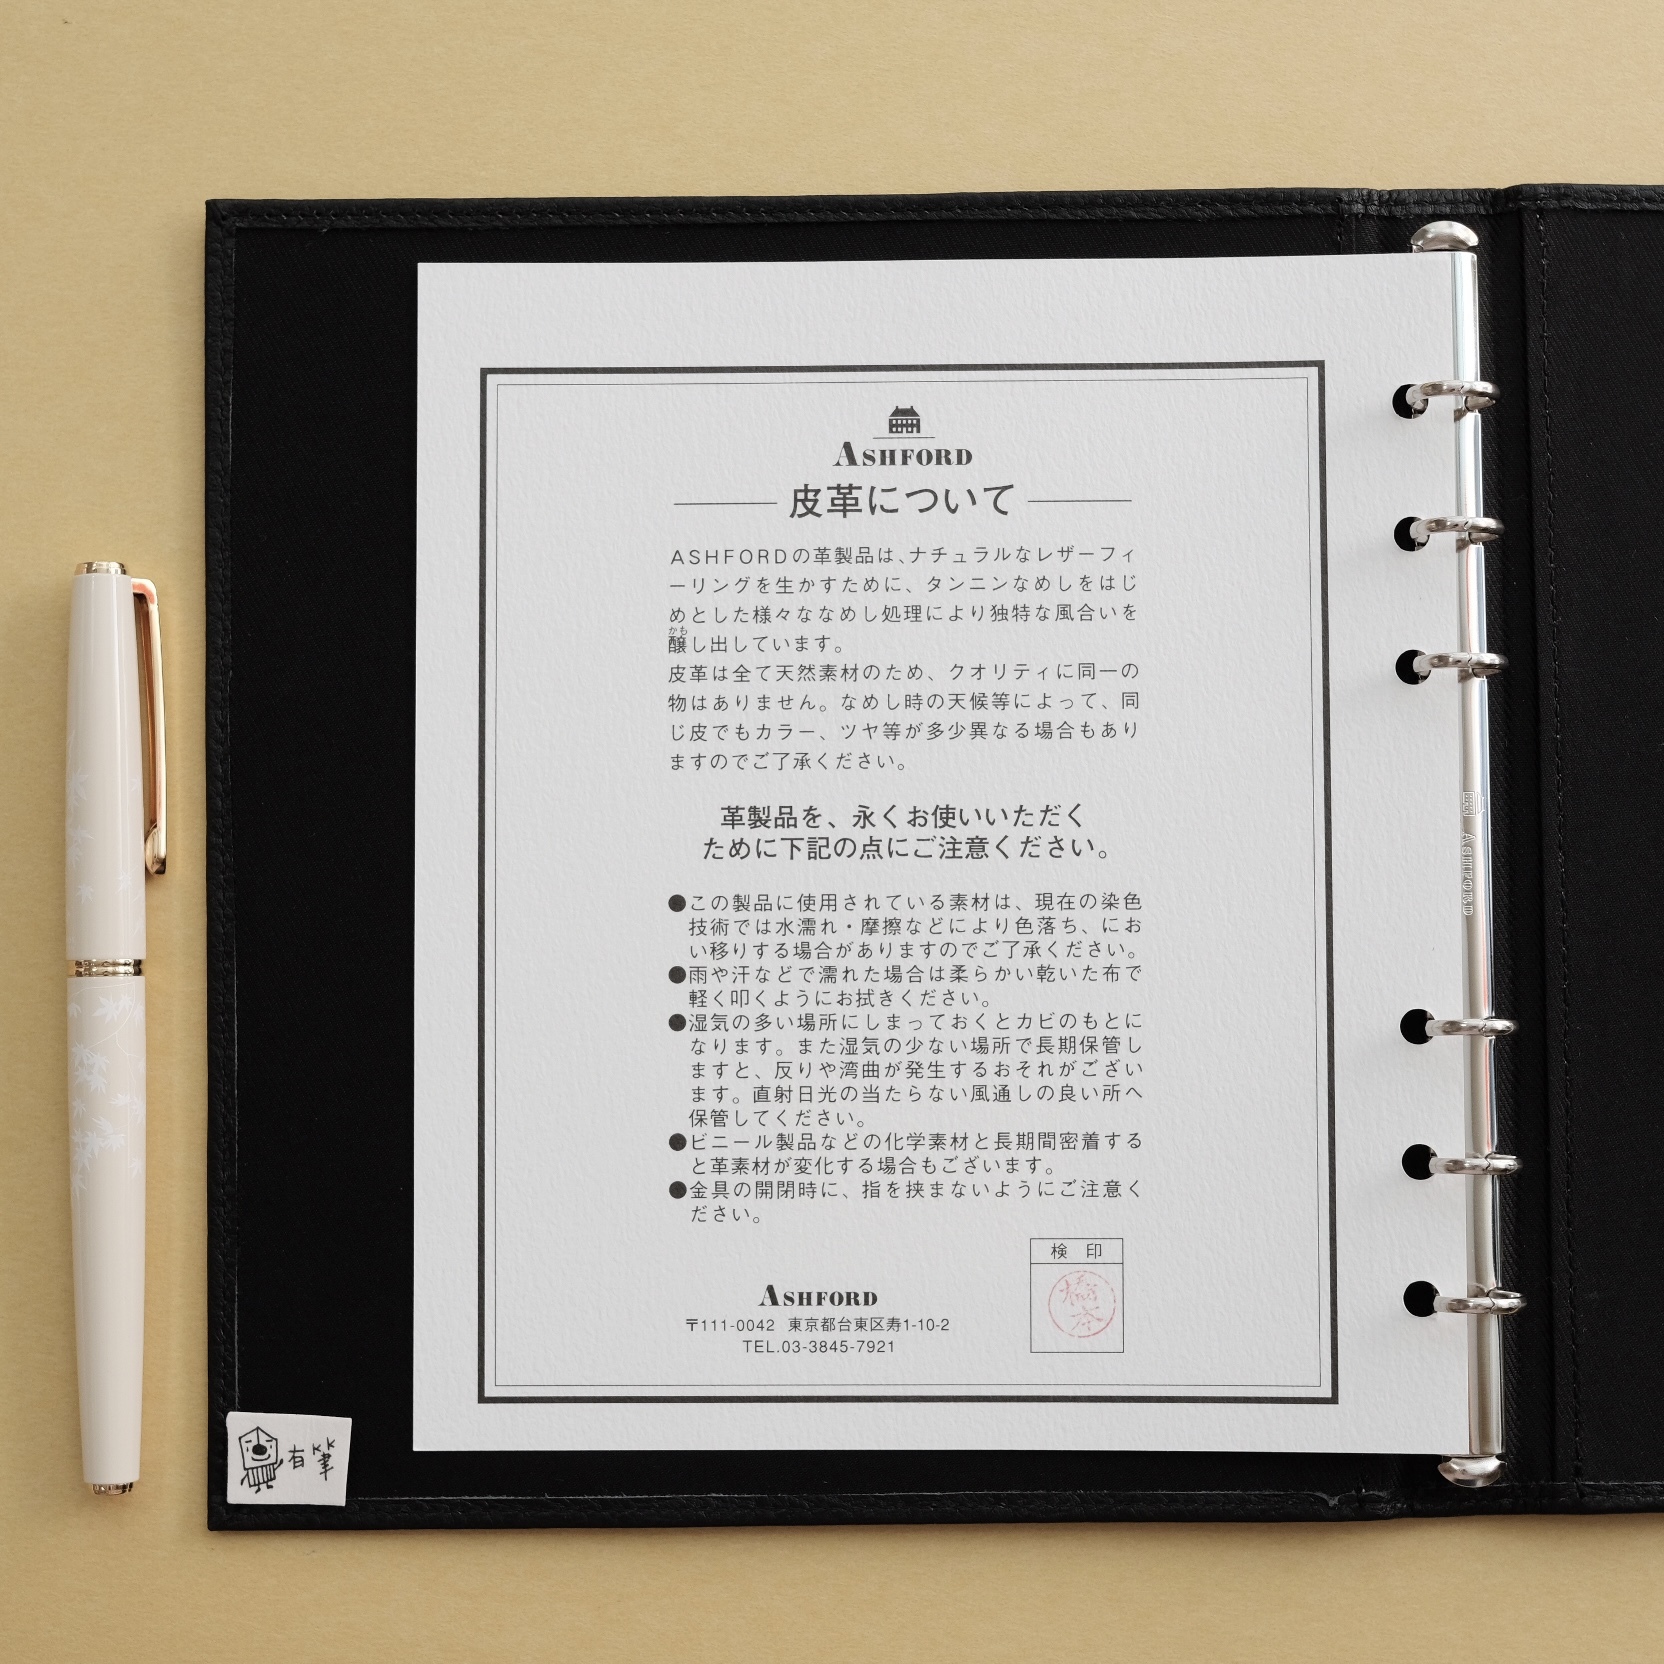 ASHFORD
皮革について
ASHFORDの革製品は、ナチュラルなレザーフィ
ーリングを生かすために、タンニンなめしをはじ
めとした様々ななめし処理により独特な風合いを
かも
醸し出しています。
皮革は全て天然素材のため、クオリティに同一の
物はありません。なめし時の天候等によって、同
じ皮でもカラー、ツヤ等が多少異なる場合もあり
ますのでご了承ください。
革製品を、永くお使いいただく
ために下記の点にご注意ください。
●この製品に使用されている素材は、現在の染色
技術では水濡れ・摩擦などにより色落ち、にお
い移りする場合がありますのでご了承ください。
●雨や汗などで濡れた場合は柔らかい乾いた布で
軽く叩くようにお拭きください。
●湿気の多い場所にしまっておくとカビのもとに
なります。また湿気の少ない場所で長期保管し
ますと、反りや湾曲が発生するおそれがござい
ます。直射日光の当たらない風通しの良い所へ
保管してください。
●ビニール製品などの化学素材と長期間密着する
と革素材が変化する場合もございます。
●金具の開閉時に、指を挟まないようにご注意く
ださい。
検 印
橋本
ASHFORD
〒111-0042 東京都台東区寿1-10-2
TEL.03-3845-7921
ASHFORD
有筆